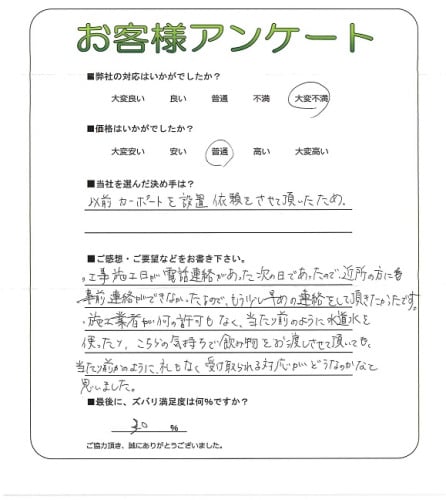 お客様アンケート
■弊社の対応はいかがでしたか?
大変良い 良い 普通 不満 大変不満
■価格はいかがでしたか?
大変安い 安い 普通 高い 大変高い
■当社を選んだ決め手は?
以前カーポートを設置依頼をさせて頂いたため。
■ご感想・ご要望などをお書き下さい。
・工事施工日が電話連絡があった次の日であったので、近所の方にも
事前連絡ができなかったなので、もう少し早めの連絡をして頂きたかったです。
・施工業者が何の許可もなく、当たり前のように水道水を
使ったり、こちらの気持ちで飲み物をお渡しさせて頂いても、
当たり前かのように、礼もなく受け取られる対応がどうなのかなと
思いました。
■最後に、ズバリ満足度は何%ですか?
30 %
ご協力頂き、誠にありがとうございました。